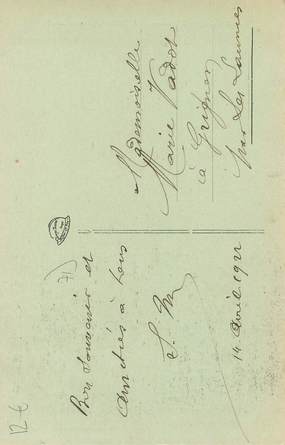 Bon souvenir et
amitiés à tous
S. M
14 Avril 1922
Mademoiselle
Marie Vadot
à Grignon
par Les Laumes
71
12 €